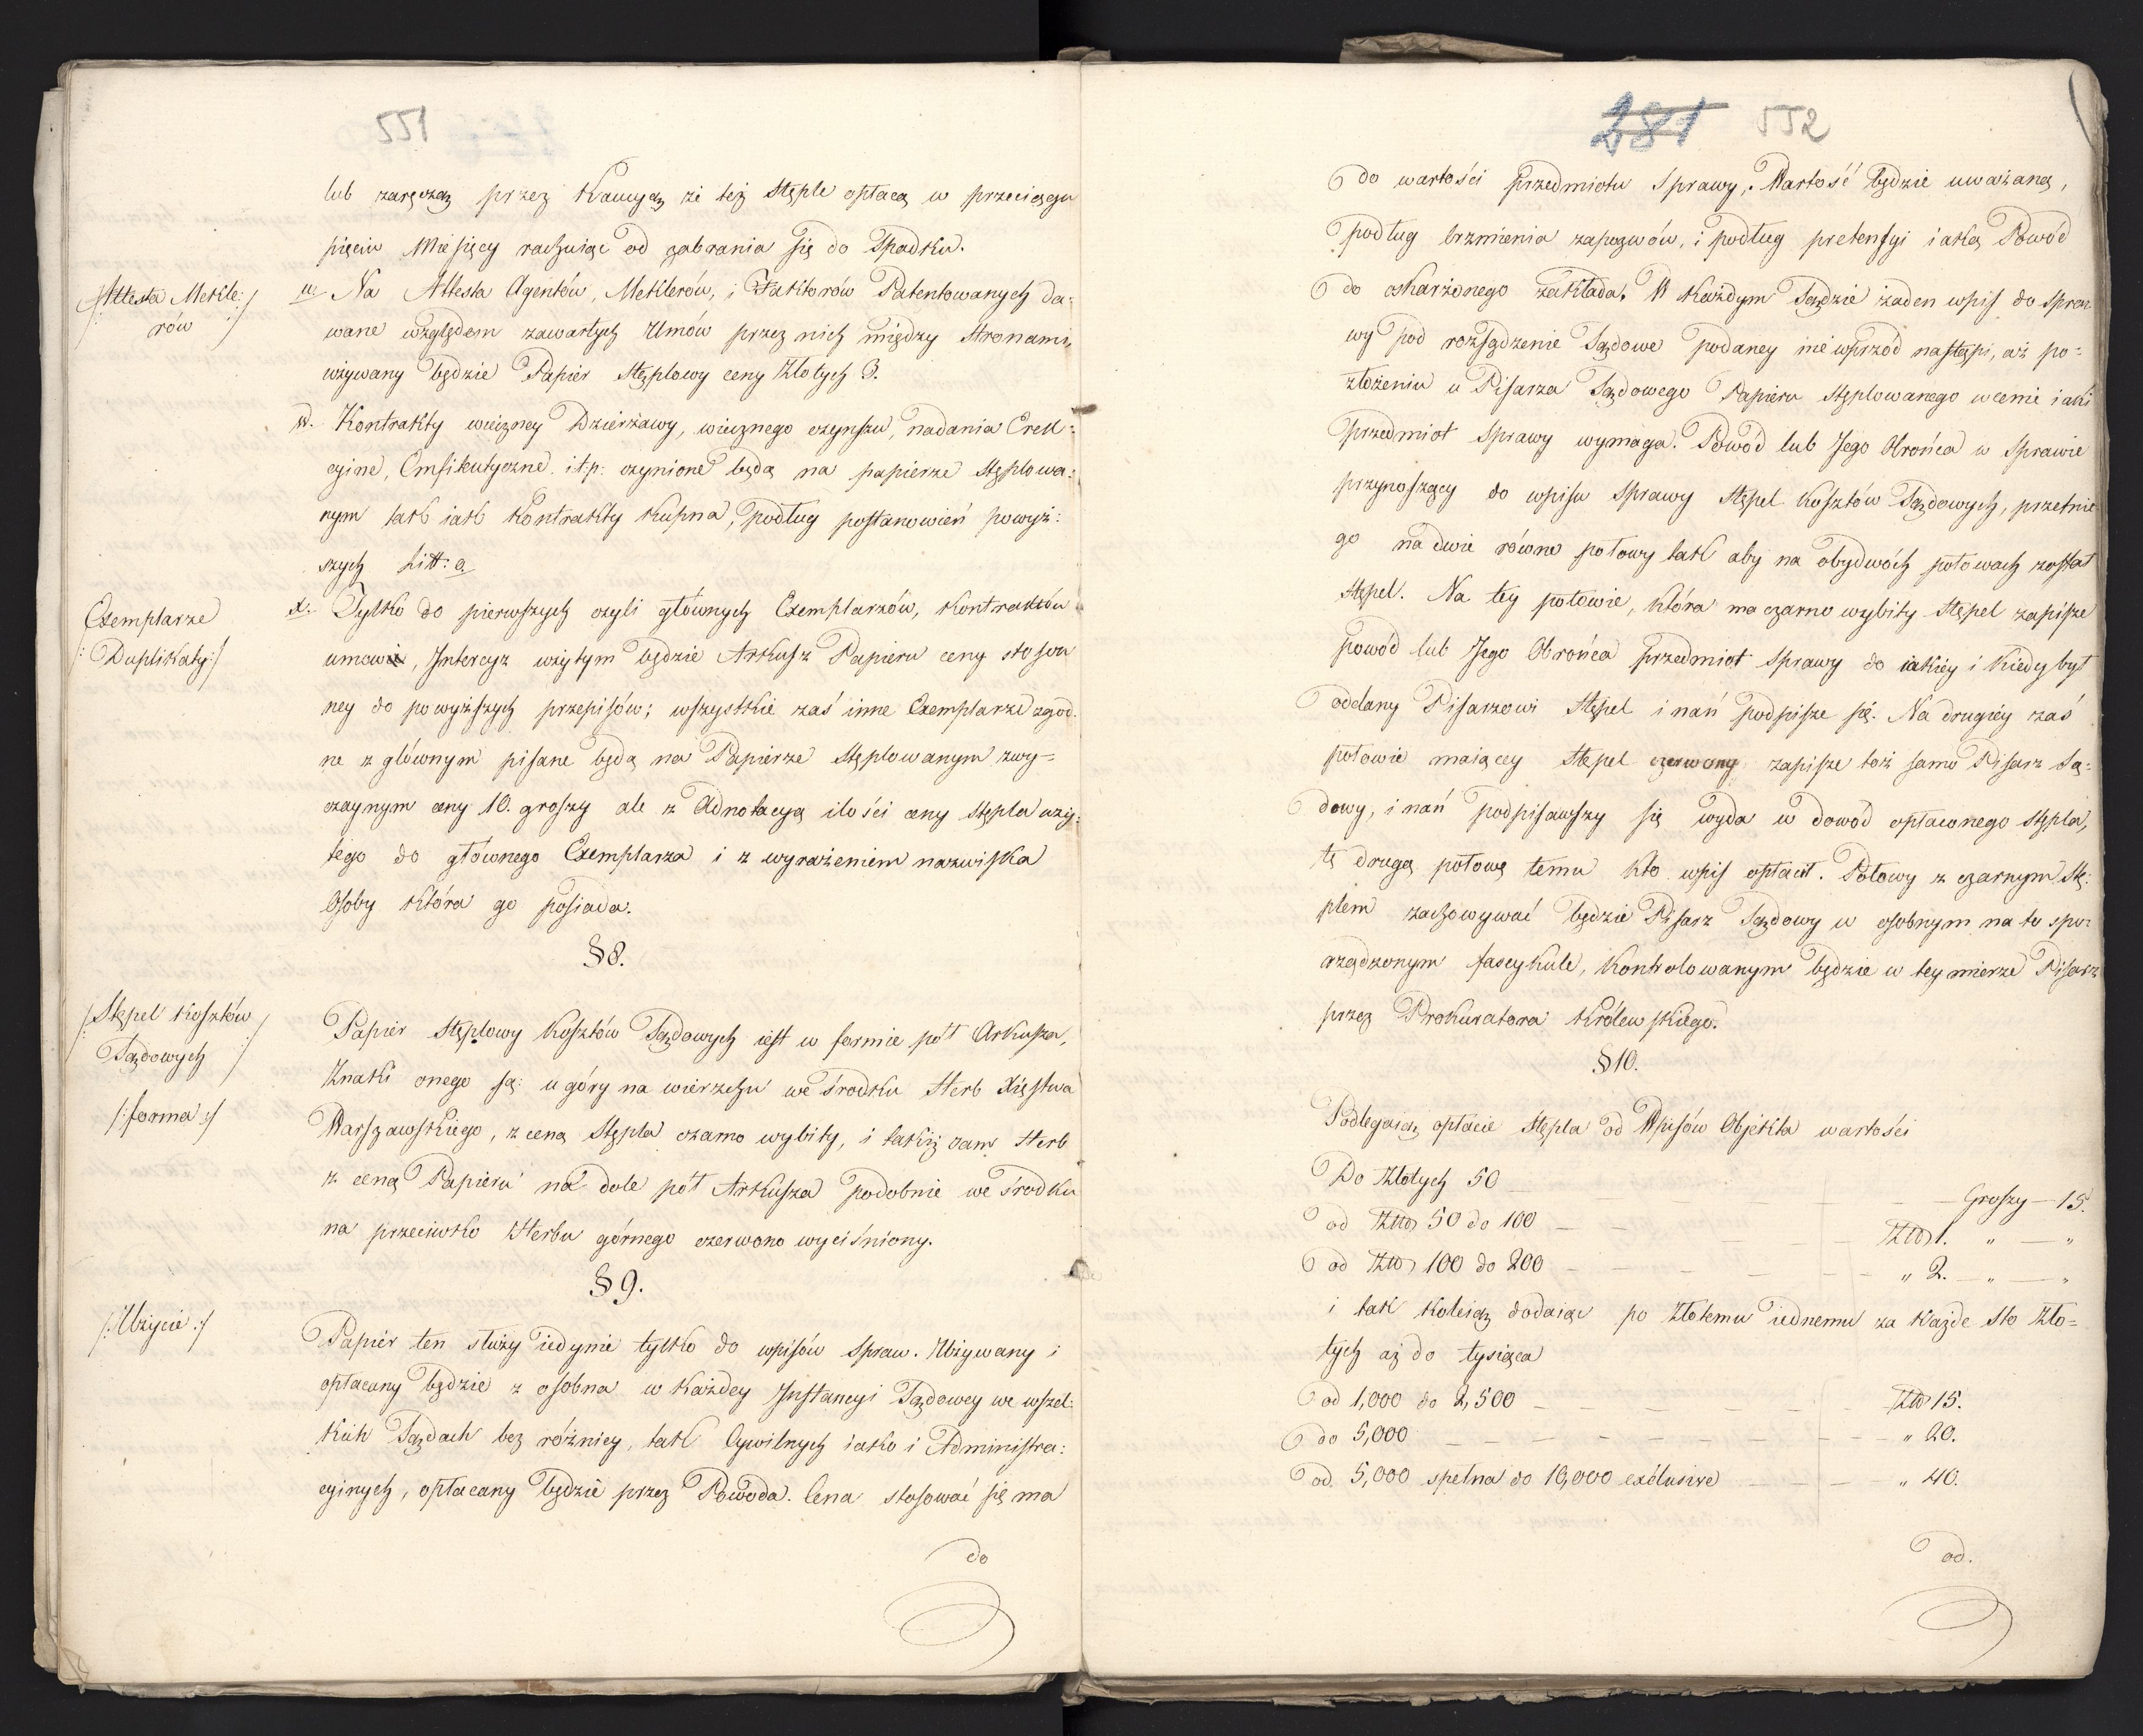 551
lub zaręczą przez Kaucyą że też Stęple opłacą w przeciągu
pięciu Miesięcy rachuiąc od zabrania się do Spadku.
/:Attesta Mekle:
rów :/
u/ Na Attesta Agentów, Meklerów, i Faktorów Patentowanych da:
wane względem zawartych Umów przez nich między Stronami,
używany będzie Papier Stęplowy ceny Złotych 3.
w. Kontrakty wieczney Dzierżawy, wiecznego czynszu, nadania Erek:
cyine, Emfiteutyczne itp: czynione będą na papierze Stęplowa:
nym tak iak Kontrakty Kupna, podług postanowień powyż:
szych Litt: a
Exemplarze
/: Duplikaty:/
x: Tylko do pierwszych czyli głównych Exemplarzów, Kontraktów
umów, Intercyz użytym będzie Arkusz Papieru ceny stosow
ney do powyższych przepisów; wszystkie zaś inne Exemplarze zgod:
ne z głównym pisane będą na Papierze Stęplowanym zwy=
czaynym ceny 10. groszy ale z Adnotacyą ilości ceny Stępla uży:
tego do głównego Exemplarza i z wyrażeniem nazwiska
Osoby która go posiada.
§8.
/:Stępel Kosztów
Sądowych :/
/:forma:/
Papier Stęplowy Kosztów Sądowych iest w formie pół Arkusza,
Znaki onego są: u góry na wierzchu we środku Herb Xięstwa
Warszawskiego, z ceną Stępla czarno wybity, i takiż sam Herb
z ceną Papieru na dole pół Arkusza podobnie we środku
na przeciwko Herbu górnego czerwono wyciśniony.
§9.
/:Użycie:/
Papier ten służy iedynie tylko do wpisów spraw. Używany i
opłacany będzie z osobna w każdey Instancyi Sądowey we wszel:
kich Sądach bez różnicy, tak Cywilnych iako i Administra:
cyinych, opłacany będzie przez Powoda. Cena stosować się ma
do
281 552
do wartości przedmiotu Sprawy, Wartość będzie uważaną,
podług brzmienia zapozwów, i podług pretensyi iaką Powód
do oskarżonego zakłada. W każdym Sądzie żaden wpis do spra
wy pod rozsądzenie Sądowe podaney nie wprzód nastąpi, aż po=
złożeniu u Pisarza Sądowego Papieru Stęplowanego w cenie iaki
przedmiot Sprawy wymaga. Powód lub Jego Obrońca w Sprawie
przynoszący do wpisu Sprawy Stępel Kosztów Sądowych, przetnie
go na dwie równe połowy tak aby na obydwóch połowach został
Stępel. Na tey połowie, która ma czarno wybity Stępel zapisze
powód lub Jego Obrońca przedmiot Sprawy do iakiey i kiedy był
oddany Pisarzowi Stępel i nań podpisze się. Na drugiey zaś
połowie maiącey Stępel czerwony zapisze toż samo Pisarz Są:
dowy, i nań podpisawszy się wyda w dowód opłaconego Stępla,
tę drugą połowę temu kto wpis opłacił. Połowy z czarnym Stę:
plem zachowywać będzie Pisarz Sądowy w osobnym na to spo:
rządzonym fascykule, Kontrolowanym będzie w tey mierze Pisarz
przez Prokuratora Królewskiego.
§10.
Podlegaią opłacie Stępla od Wpisów Objekta wartości
Do Złotych 50 — Groszy — 15.
od Złtch 50 do 100 — — — — — Złt 1. „ — „
od Złt 100 do 200 — — — — — „ 2. — „ — „
i tak koleią dodaiąc po Złotemu iednemu za każde sto Zło=
tych aż do tysiąca
od 1,000 do 2,500 — — — — — Złt 15.
do 5,000 — — — — — „ 20.
od 5,000 spełna do 10,000 exclusive — — — „ 40.
od.